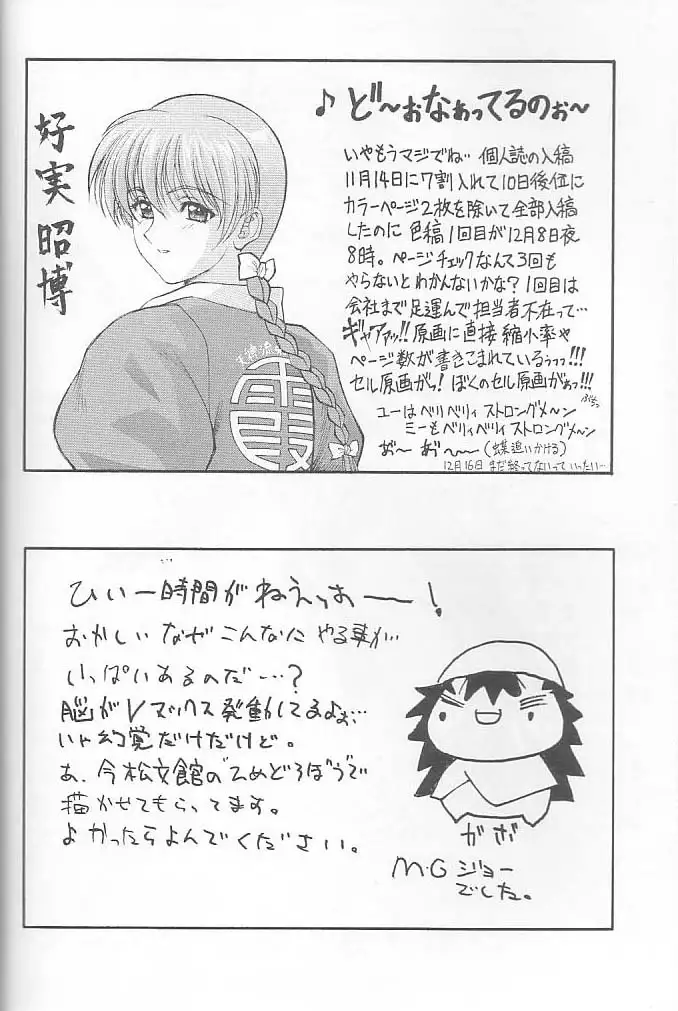 好実昭博
♪ど〜ぉなぁってるのぉ〜
いやもうマジでね… 個人誌の入稿
11月14日に7割入れて10日後位に
カラーページ2枚を除いて全部入稿
したのに 色稿1回目が12月8日夜
8時。ページチェックなんて3回も
やらないとわかんないかな?1回目は
会社まで足運んで担当者不在って…
ギャアァッ!!原画に直接縮小率や
ページ数が書きこまれているぅっっ!!!
セル原画がっ!ぼくのセル原画がぁっ!!!
ユーはベリベリィストロングメ〜ン
ミーもベリィベリィストロングメ〜ン
お〜 お〜〜(蝶追いかける)
12月16日 まだ終ってないっていったい…
霞
ひぃ一時間がねえっおーー!
おかしいなぜこんなに やる事が…
いっぱいあるのだ…?
脳がVマックス発動してるよぉ…
いや幻覚だけだけど。
あ、今松文館の"ひめどろぼう"で
描かせてもらってます。
よかったらよんでください。
がお
M・Gジョー
でした。